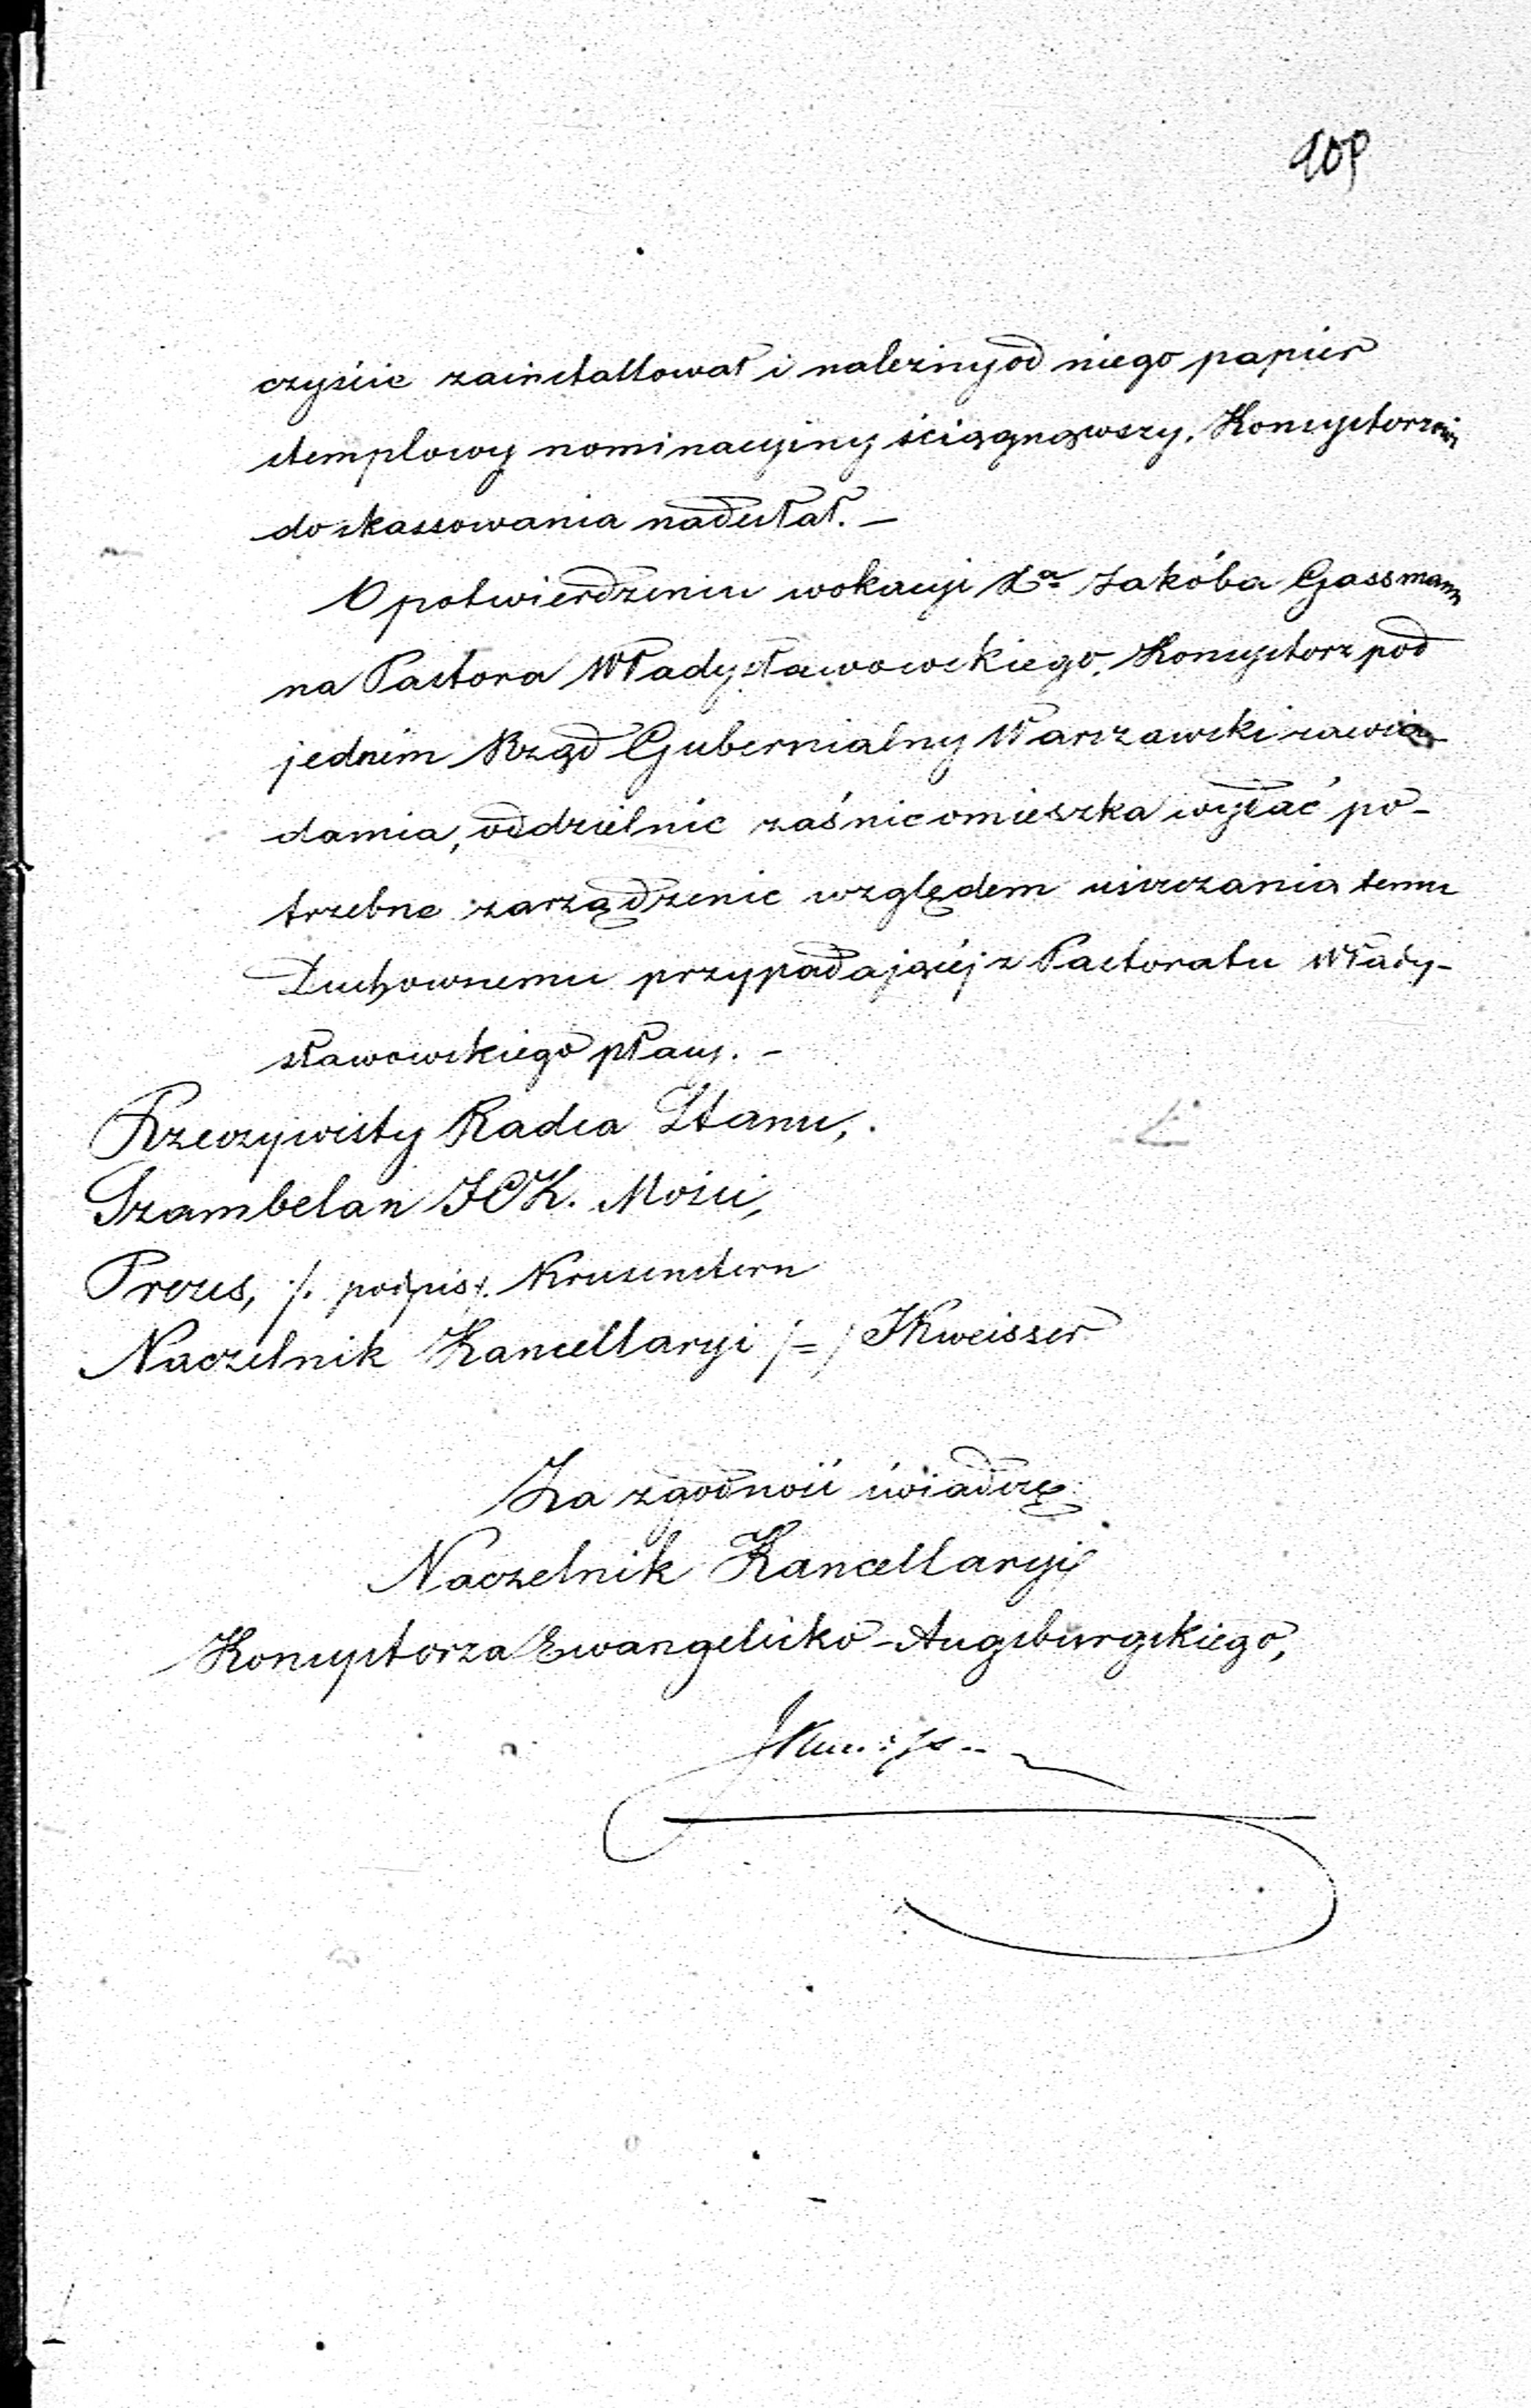 109
czyście zainstallował i należny od niego papier
stemplowy nominacyjny ściągnąwszy, Konsystorzowi
do skassowania nadesłał. –
O potwierdzeniu wokacyi Xa Jakóba Gassmann
na Pastora Władysławowskiego, Konsystorz pod
jednem Rząd Gubernialny Warszawski zawia-
damia, oddzielnie zaś nieomieszka wysłać po-
trzebne zarządzenie względem uiszczania temu
Duchownemu przypadającéj z Pastoratu Włady-
sławowskiego płacy. –
Rzeczywisty Radca Stanu,
Szambelan JCK. Mości,
Prezes, /. podpis /. Krusenstern
Naczelnik Kancellaryi /=/ JKweisser
Za zgodność świadczę
Naczelnik Kancellaryi
Konsystorza Ewangelicko-Augsburgskiego,